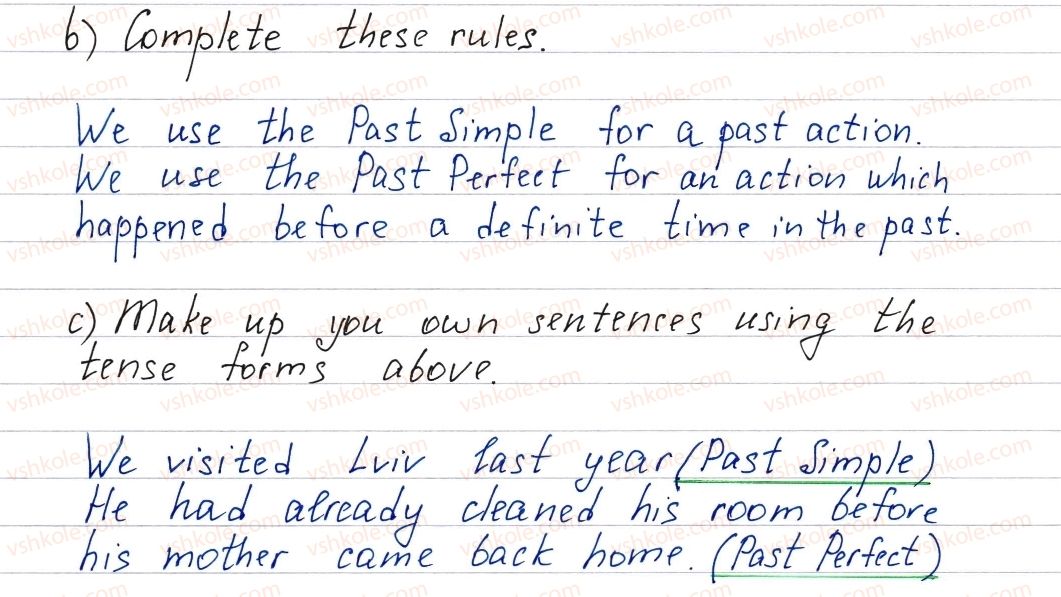 b) Complete these rules.
We use the Past Simple for a past action.
We use the Past Perfect for an action which
happened before a definite time in the past.
c) Make up you own sentences using the
tense forms above.
We visited Lviv last year (Past Simple)
He had already cleaned his room before
his mother came back home. (Past Perfect)